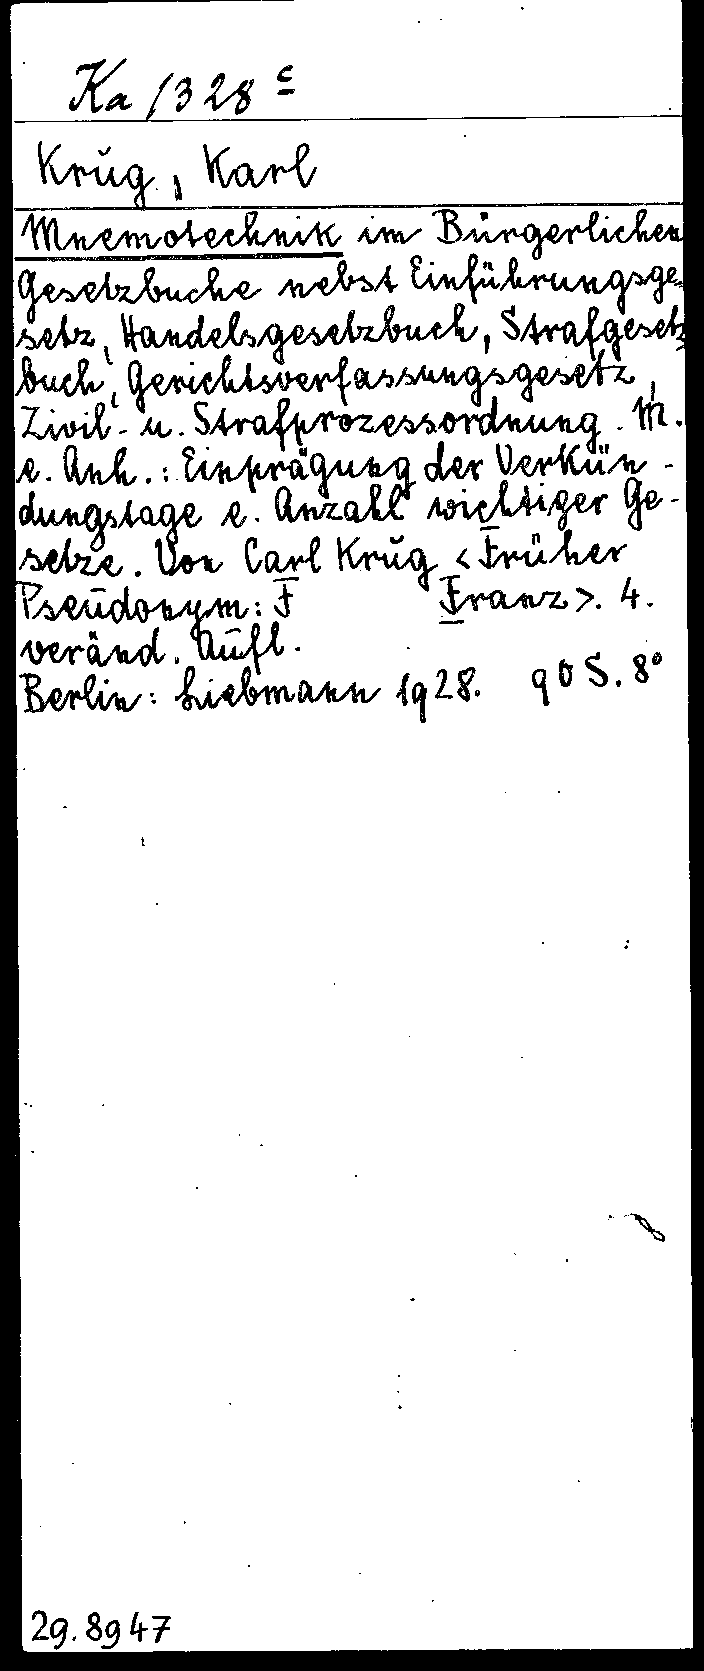 Ka 1328 c
Krug, Karl
Mnemotechnik im Bürgerlichen
Gesetzbuche nebst Einführungsge-
setz, Handelsgesetzbuch, Strafgesetz
buch, Gerichtsverfassungsgesetz,
Zivil- u. Strafprozessordnung. M.
e. Anh.: Einprägung der Verkün-
dungstage e. Anzahl wichtiger Ge-
setze. Von Carl Krug <Früher
Pseudonym: F Franz>. 4.
veränd. Aufl.
Berlin: Liebmann 1928. 90 S. 8°
29.8947